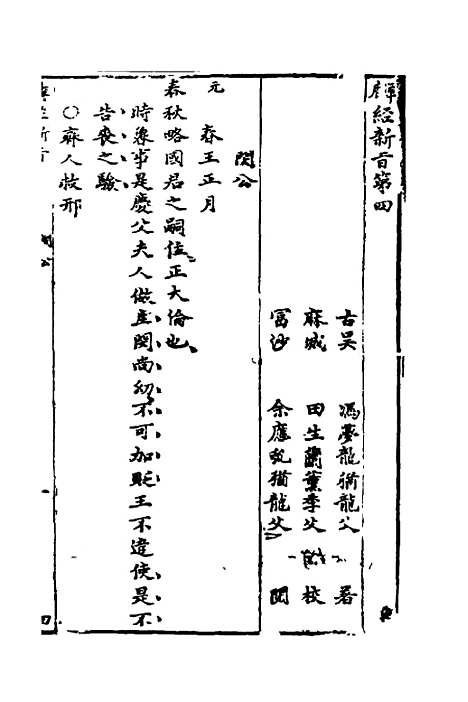 麟經新旨第四
古吳 馮夢龍猶龍父 著
麻城 田生蘭薰季父 校
富沙 余應虬猶龍父 閱
閔公
元 春王正月
春秋略國君之嗣位正大倫也
時象事是慶父夫人做主閔尚幼不可加貶王不遣使是不
告喪之驗
○齊人救邢
閔公 一